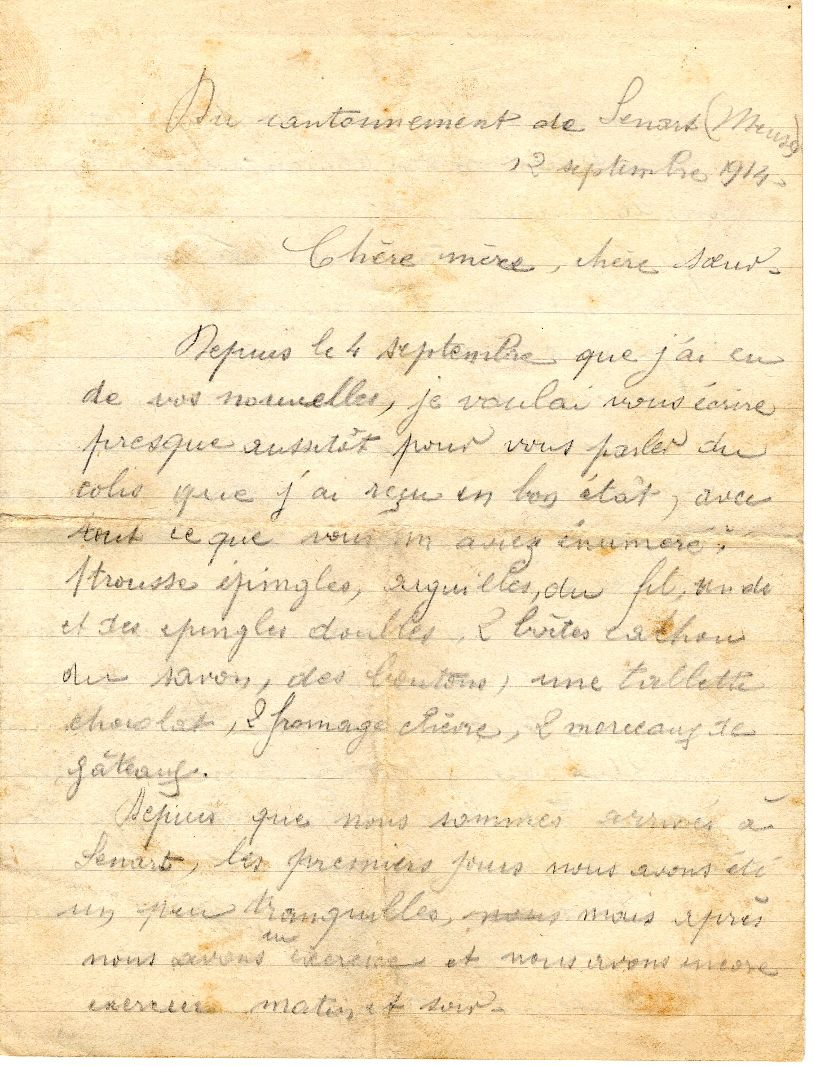 Du cantonnement de Senart (Meuse)
12 septembre 1914.
Chère mère, chère sœur.
Depuis le 4 septembre que j'ai eu
de vos nouvelles, je voulai vous écrire
presque aussitôt pour vous parler du
colis que j'ai reçu en bon état, avec
tout ce que vous m'aviez énuméré :
1 trousse épingles, aiguilles, du fil,
et des epingles doubles, 2 boîtes cachou
du savon, des boutons, une tablette
chocolat, 2 fromage chèvre, 2 morceaux de
gâteaux.
Depuis que nous sommes arrivés à
Senart, les premiers jours nous avons été
un peu tranquilles, nous mais après
nous avons eu exercice et nous avons encore
exercice matin et soir.